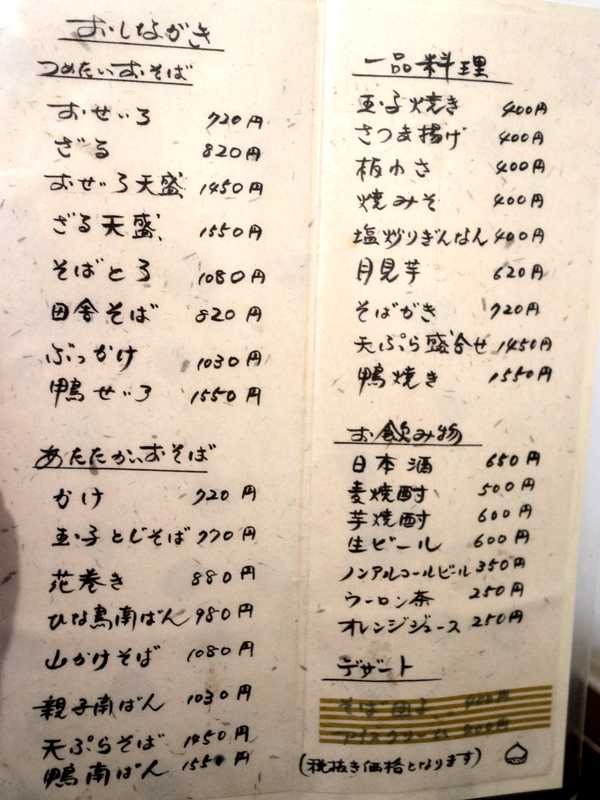 おしながき
つめたいおそば
おせいろ 720円
ざる 820円
おせいろ天盛 1450円
ざる天盛 1550円
そばとろ 1080円
田舎そば 820円
ぶっかけ 1030円
鴨せいろ 1550円
あたたかいおそば
かけ 720円
玉子とじそば 770円
花巻き 880円
ひな鳥南ばん 980円
山かけそば 1080円
親子南ばん 1030円
天ぷらそば 1450円
鴨南ばん 1550円
一品料理
玉子焼き 400円
さつま揚げ 400円
板わさ 400円
焼みそ 400円
塩炒りぎんなん 400円
月見芋 620円
そばがき 720円
天ぷら盛合せ 1450円
鴨焼き 1550円
お飲み物
日本酒 650円
麦焼酎 500円
芋焼酎 600円
生ビール 600円
ノンアルコールビール 350円
ウーロン茶 250円
オレンジジュース 250円
デザート
そば団子
アイスクリーム
(税抜き価格となります)